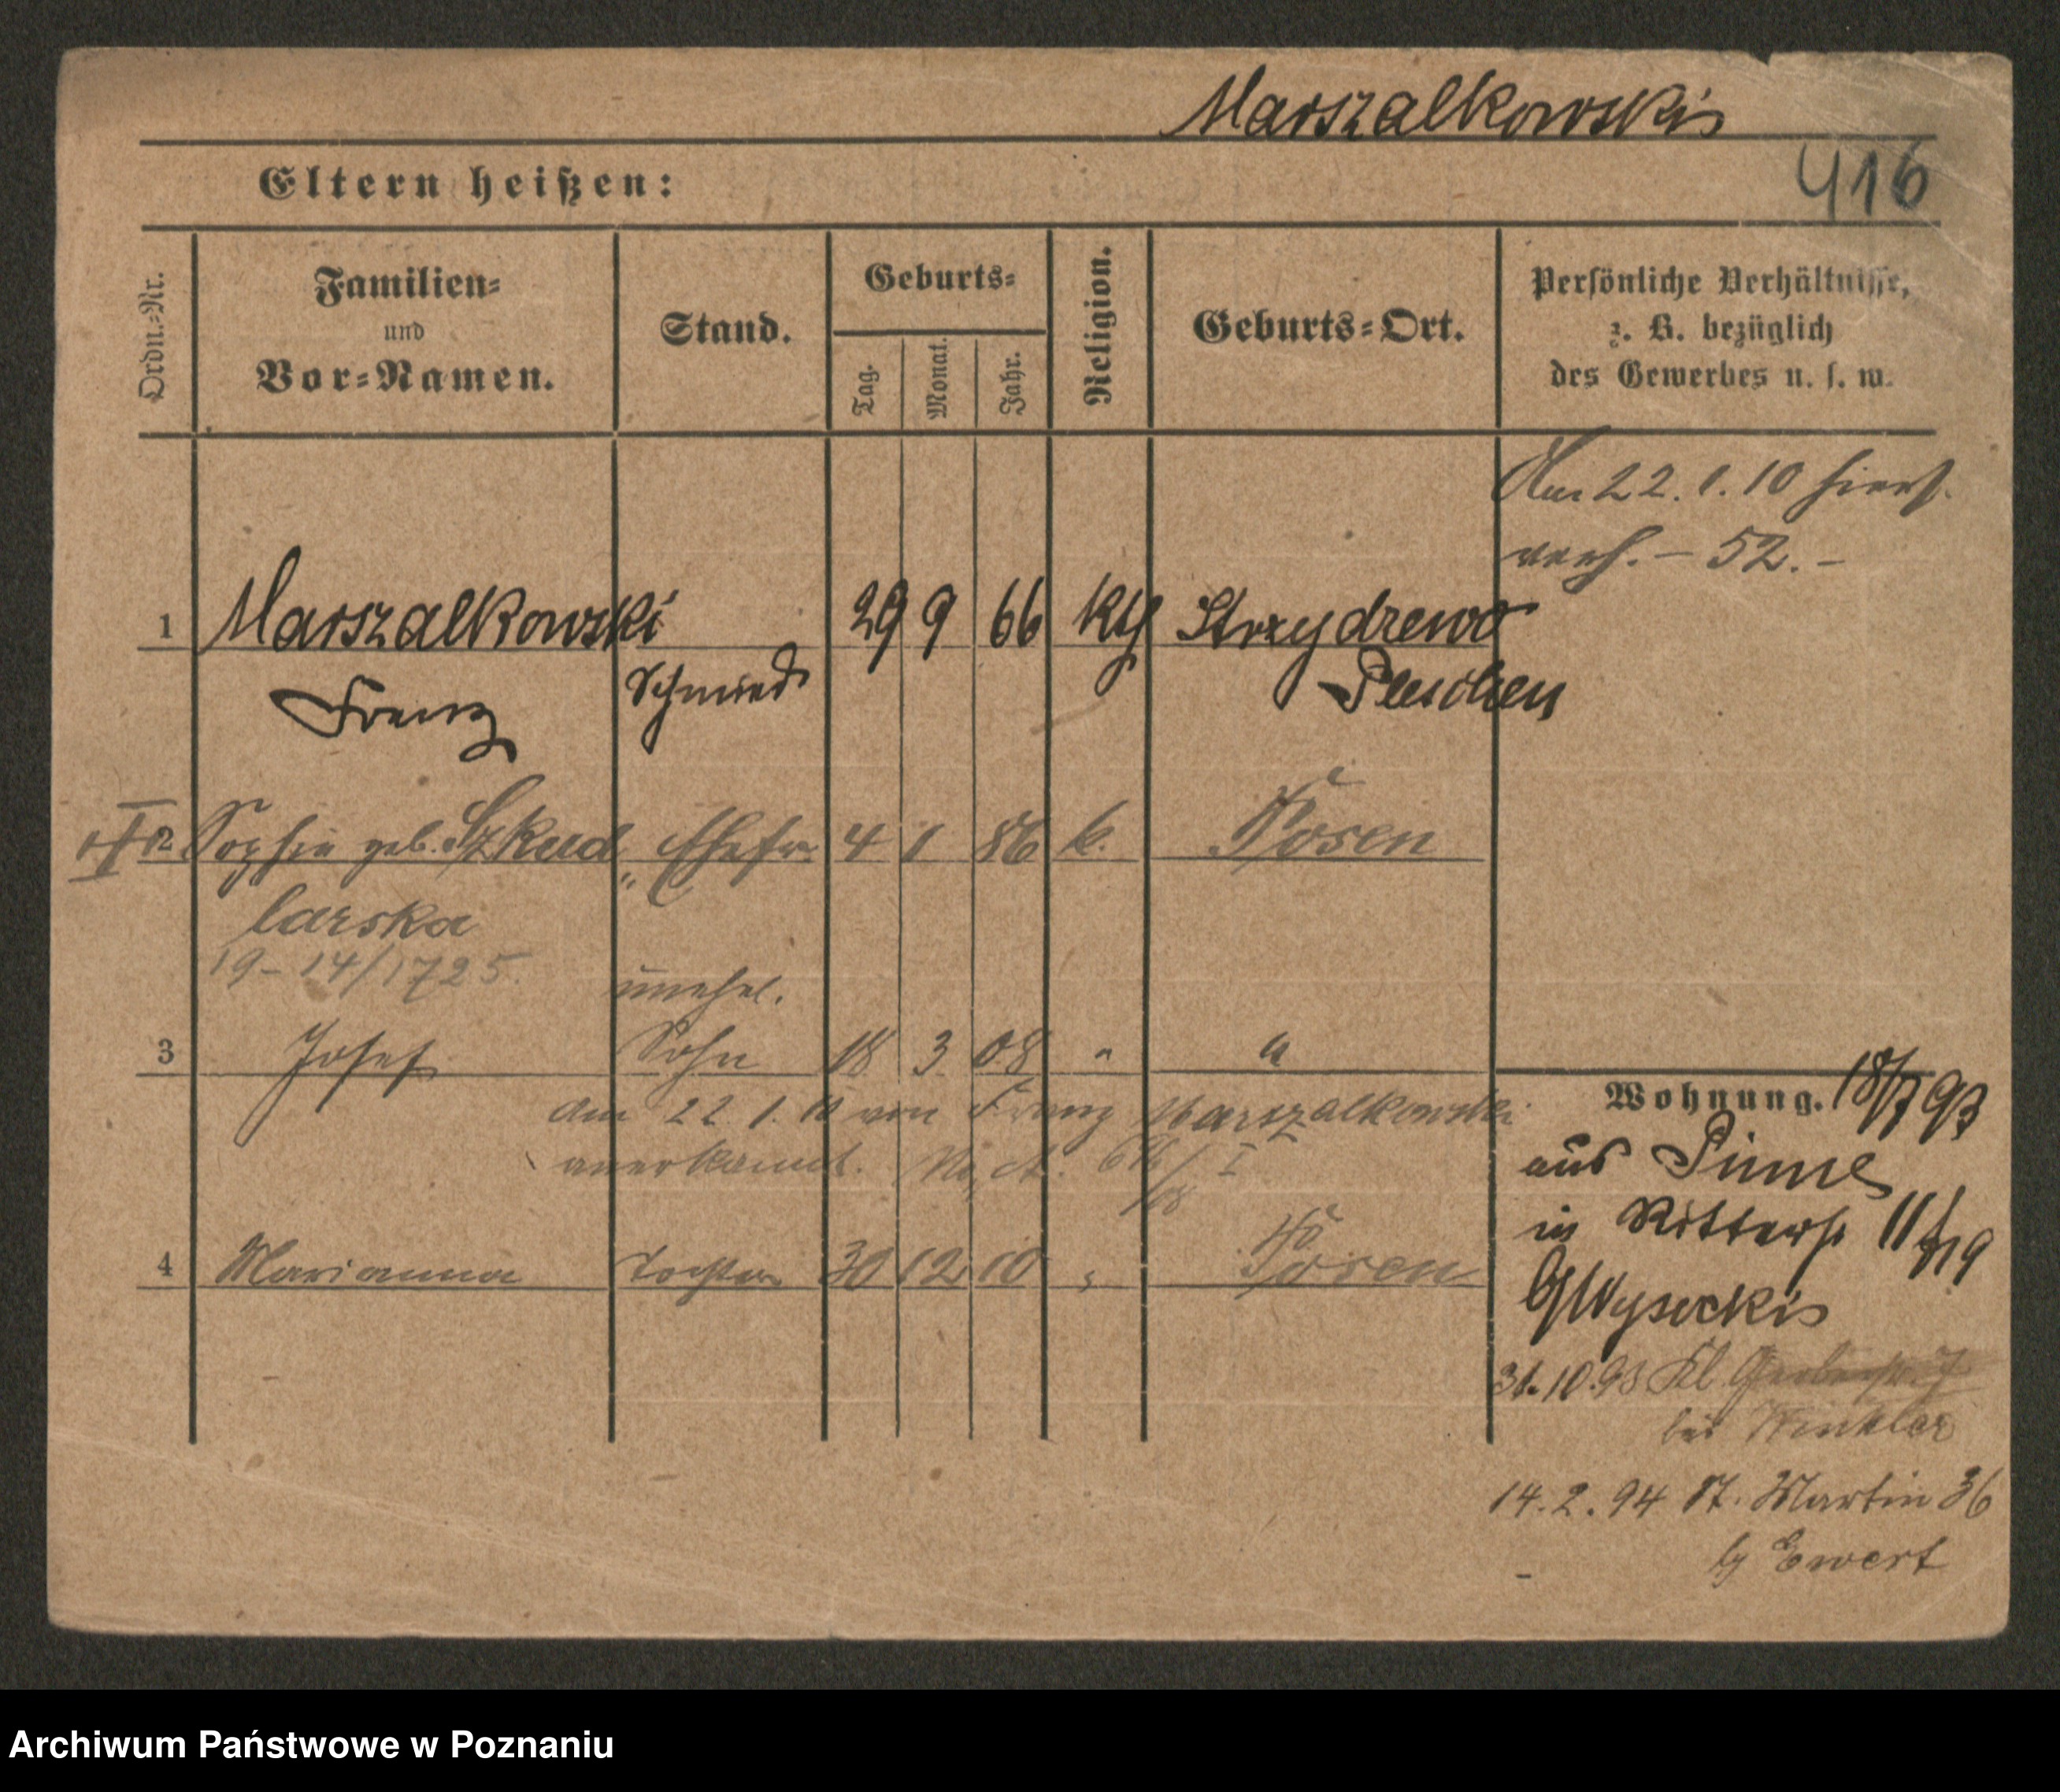 Marszalkowski
416
Eltern heißen:
Ordn.-Nr.
Familien-
und
Vor-Namen.
Stand.
Geburts-
Tag.
Monat.
Jahr.
Religion.
Geburts-Ort.
Persönliche Verhältnisse,
z. B. bezüglich
des Gewerbes u. s. w.
Am 22. 1. 10 hiers.
verh. – 52. –
1 Marszalkowski 29 9 66 Kth Strzydzewo
Franz Schmied Pleschen
II 2 Sophie geb. Szkud Ehefr 4 1 86 k. Posen
larska
19 – 14/1725.
unehel.
3 Josef Sohn 18 3 08 " "
Am 22 1. 10 von Franz Marszalkowski
anerkannt. I
4 Marianna Tochter 30 12 10 " Posen
Wohnung. 18/7 93
aus Pinne
in Ritterstr 11
Wysockis
31. 10. 93 Kl. Gerberstr. 7
bei Winkler
14. 2. 94 St. Martin 36
by Ewert
Archiwum Państwowe w Poznaniu